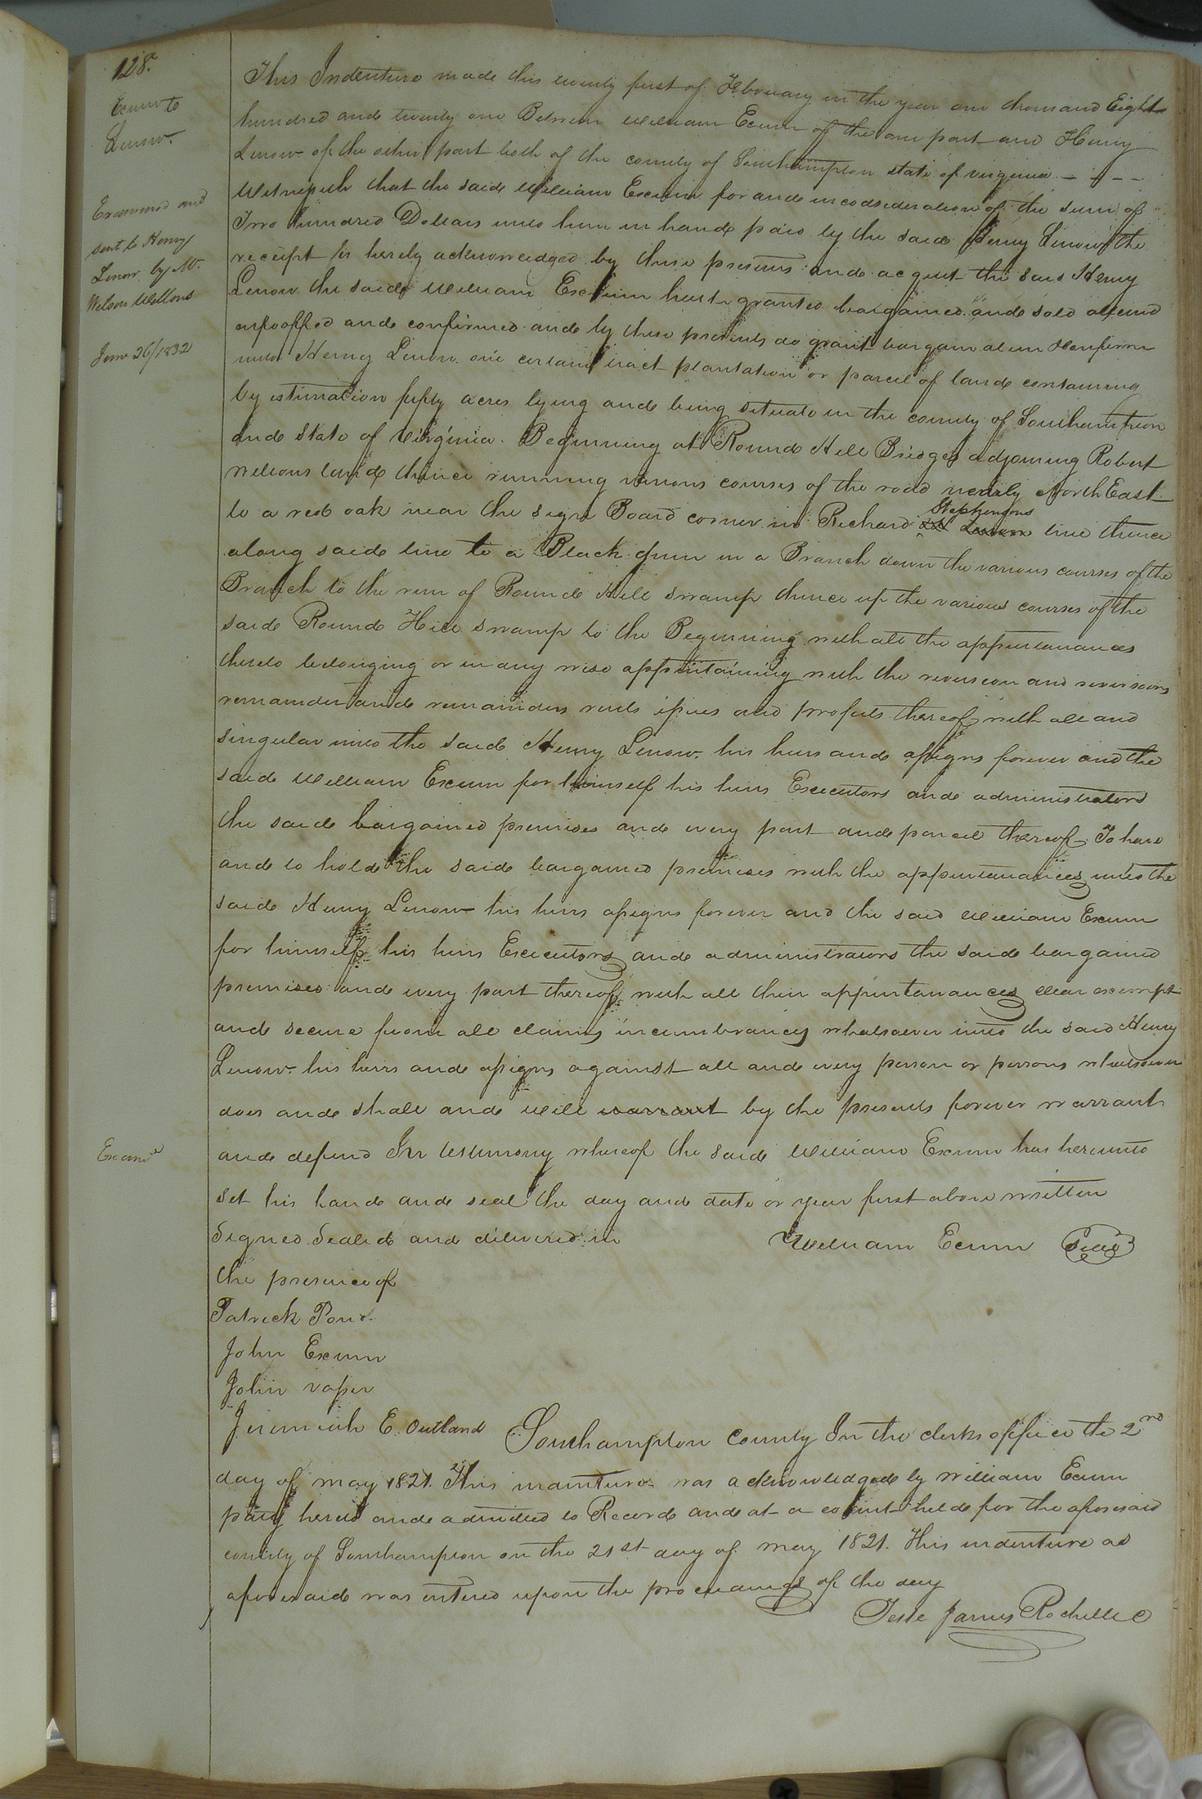 128.
Exum to
Lenow.
Examined and
sent to Henry
Lenow by Mr.
Wilson Wellons
June 26/1832
This Indenture made this twenty first of February in the year one thousand Eight
hundred and twenty one Between William Exum of the one part and Henry
Lenow of the other part both of the county of Southampton state of virginia
Witnesseth that the said William Exum for and in consideration of the sum of
Two hundred Dollars unto him in hand paid by the said Henry Lenow the
receipt is hereby acknowledged by these presents and acquit the said Henry
Lenow the said William Exum hath granted bargained and sold aliend
enfeoffed and confirmed and by these presents do grant bargain alien & confirm
unto Henry Lenow one certain tract plantation or parcel of land containing
by estimation fifty acres lying and being situate in the county of Southampton
and State of Virginia. Beginning at Round Hill Bridge adjoining Robert
Nelsons land thence running various courses of the road nearly North East
to a red oak near the sign Board corner in Richard Stephensons line thence
along said line to a Black Gum in a Branch down the various courses of the
Branch to the run of Round Hill swamp thence up the various courses of the
said Round Hill swamp to the Beginning with all the appurtenances
thereto belonging or in any wise appertaining with the reversion and reversions
remainder and remainders rents issues and profits thereof with all and
singular unto the said Henry Lenow his heirs and assigns forever and the
said William Exum for himself his heirs Executors and administrators
the said bargained premises and every part and parcel thereof To have
and to hold the said bargained premises with the appurtenances unto the
said Henry Lenow his heirs assigns forever and the said William Exum
for himself his heirs Executors and administrators the said bargained
premises and every part thereof with all their appurtenances clear exempt
and secure from all claims incumbrances whatsoever unto the said Henry
Lenow his heirs and assigns against all and every person or persons whatsoever
does and shall and will warrant by the presents forever warrant
Examd
and defend In testimony whereof the said William Exum has hereunto
set his hand and seal the day and date or year first above written
Signed Sealed and delivered in William Exum Seal
the presence of
Patrick Pond
John Exum
John vaser
Jeremiah E. Outland Southampton County In the clerks office the 2nd
day of may 1821. This indenture was acknowledged by William Exum
party hereto and admitted to Record and at a court held for the aforesaid
county of Southampton on the 21st day of may 1821. This indenture as
aforesaid was entered upon the proceedings of the day
Teste James Rochelle C